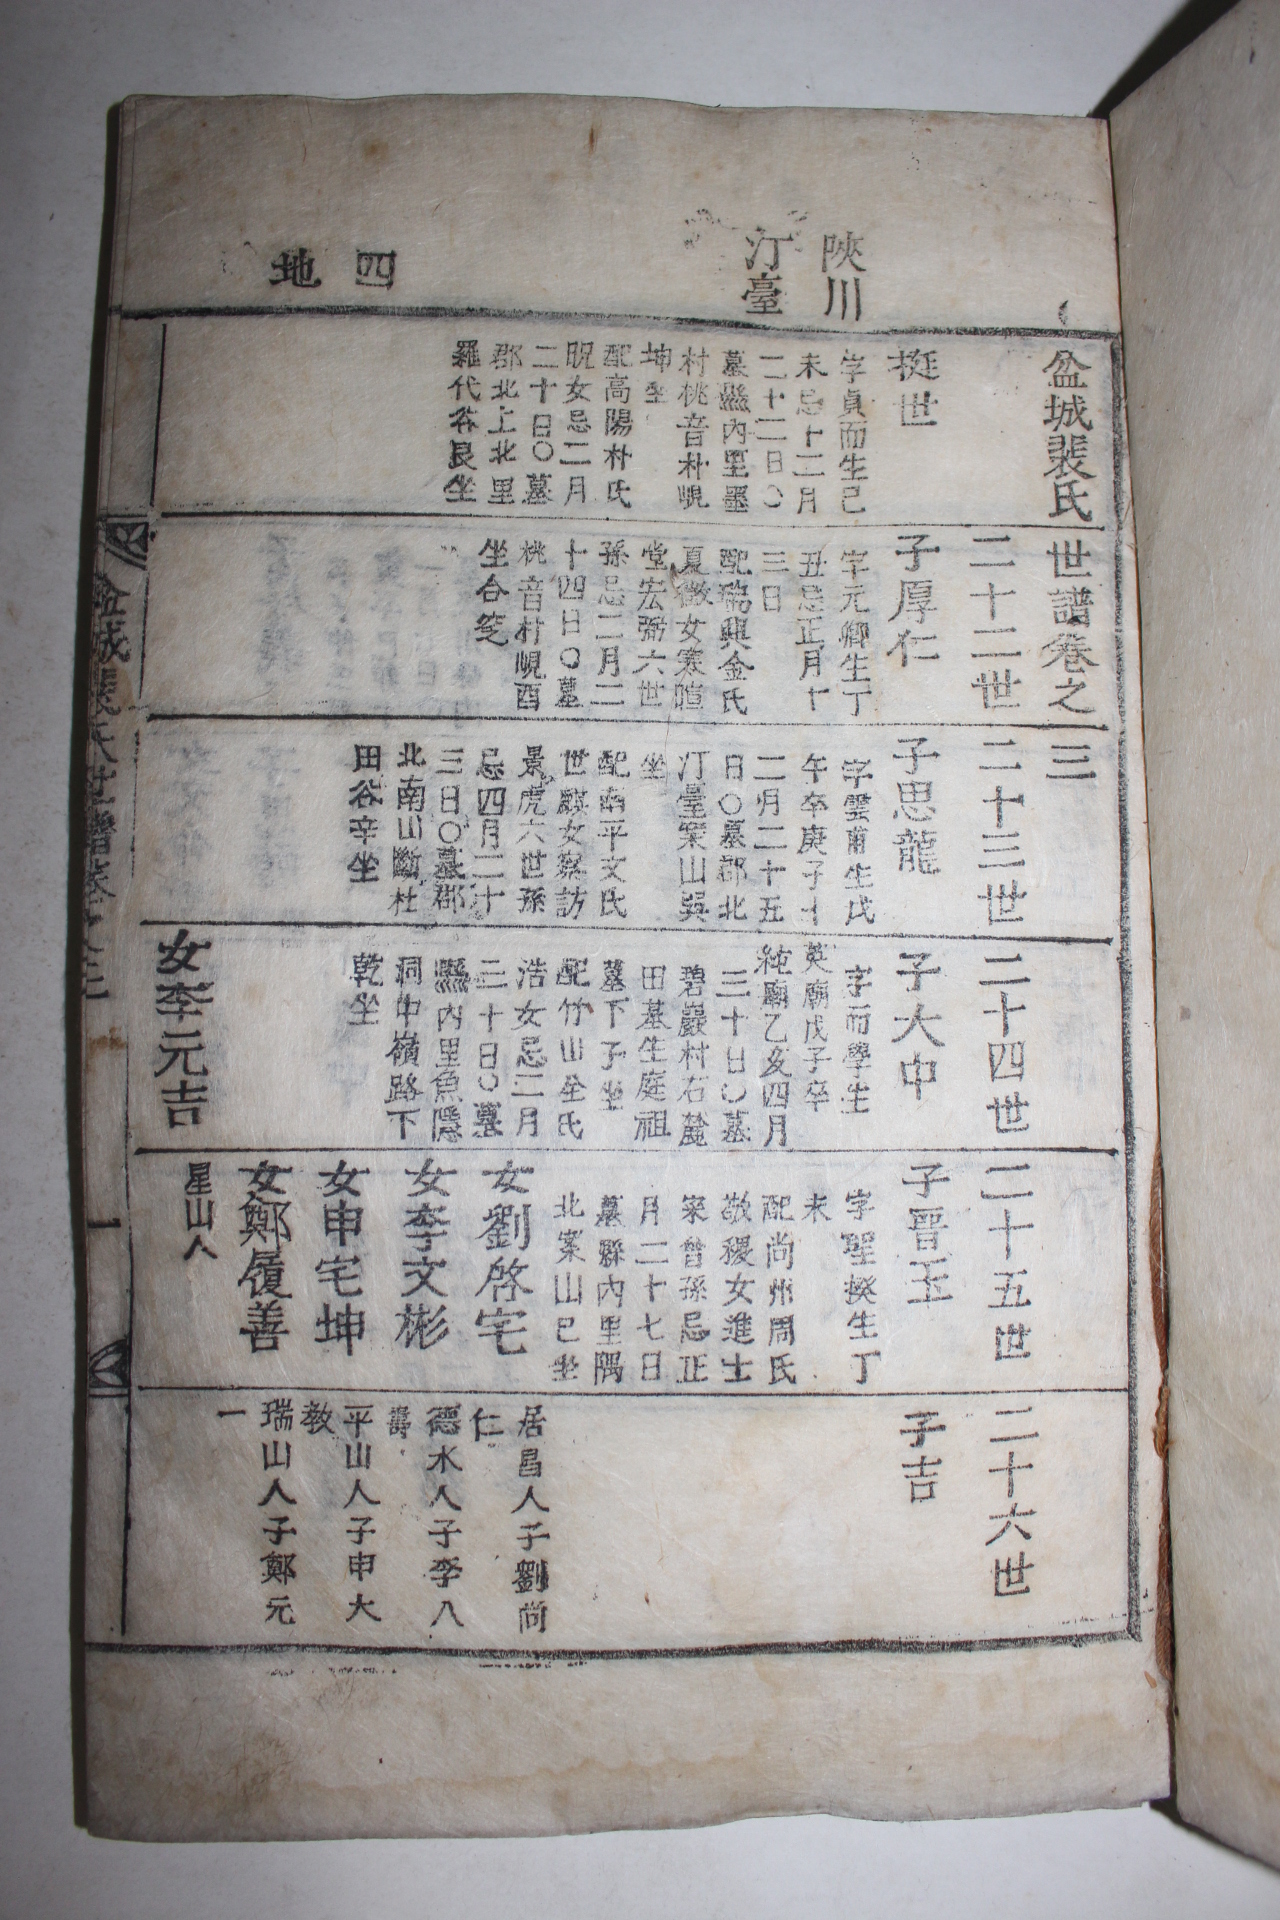 陜川
汀臺
四
地
盆城裴氏世譜卷之三
挺世
字貞而生己
未忌十二月
二十二日〇
墓縣內里墨
村桃音朴峴
坤坐
配高陽朴氏
昵女忌二月
二十日〇墓
郡北上北里
羅代谷艮坐
二十二世
子厚仁
字元卿生丁
丑忌正月十
三日
配瑞興金氏
夏徵女寒暄
堂宏弼六世
孫忌二月二
十四日〇墓
桃音村峴酉
坐合窆
二十三世
子思龍
字雲甫生戊
午卒庚子十
二月二十五
日〇墓郡北
汀臺案山吳
坐
配南平文氏
世麒女蔡訪
景虎六世孫
忌四月二十
三日〇墓郡
北南山斷杜
田谷辛坐
二十四世
子大中
字而學生
英廟戊子卒
純廟乙亥四月
三十日〇墓
碧巖村石麓
田基生庭祖
墓下子坐
配竹山全氏
浩女忌二月
二十日〇墓
縣內里魚隱
洞中嶺路下
乾坐
女李元吉
二十五世
子晋玉
字聖揆生丁
未
配尚州周氏
敬稷女進士
寀曾孫忌正
月二十七日
墓縣內里隅
北案山巳坐
女劉啓宅
女李文彬
女申宅坤
女鄭履善
星山人
二十六世
子吉
居昌人子劉尚
仁
德水人子李八
壽
平山人子申大
教
瑞山人子鄭元
一
盆城裴氏世譜卷之三
一